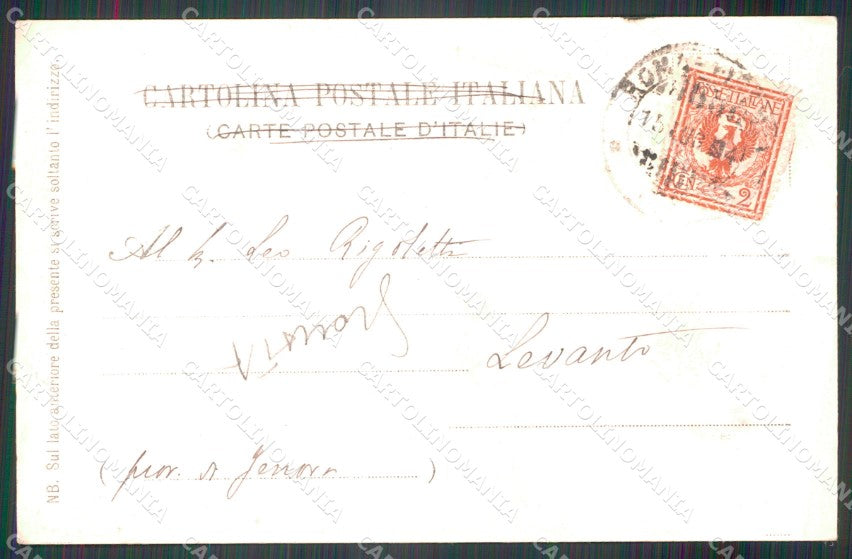 CARTOLINA POSTALE ITALIANA
(CARTE POSTALE D'ITALIE)
ROMA
POSTE ITALIANE
CEN 2
Al Leo Rigoletti
Levanto
(prov. di Genova)
NB. Sul lato anteriore della presente si scrive soltanto l'indirizzo.
CARTOLINOMANIA